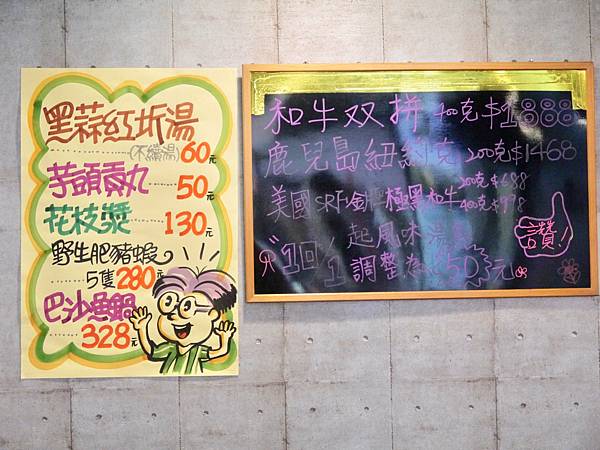 黑蒜紅圻湯
(不續湯) 60元
芋頭貢丸 50元
花枝漿 130元
野生肥豬蝦
5隻 280元
巴沙魚鍋
328元
和牛双拼 400克 $1888
鹿兒島紐約克 200克 $1468
美國SRF金牌極黑和牛 200克 $688
400克 $978
讚!
10/1起風味湯
調整為50元